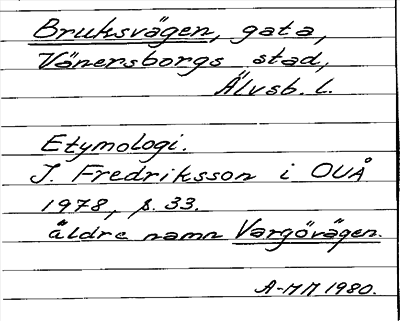 Bruksvägen, gata,
Vänersborgs stad,
Älvsb. l.
Etymologi.
I. Fredriksson i OUÅ
1978, s. 33.
äldre namn Vargövägen.
A-MM 1980.